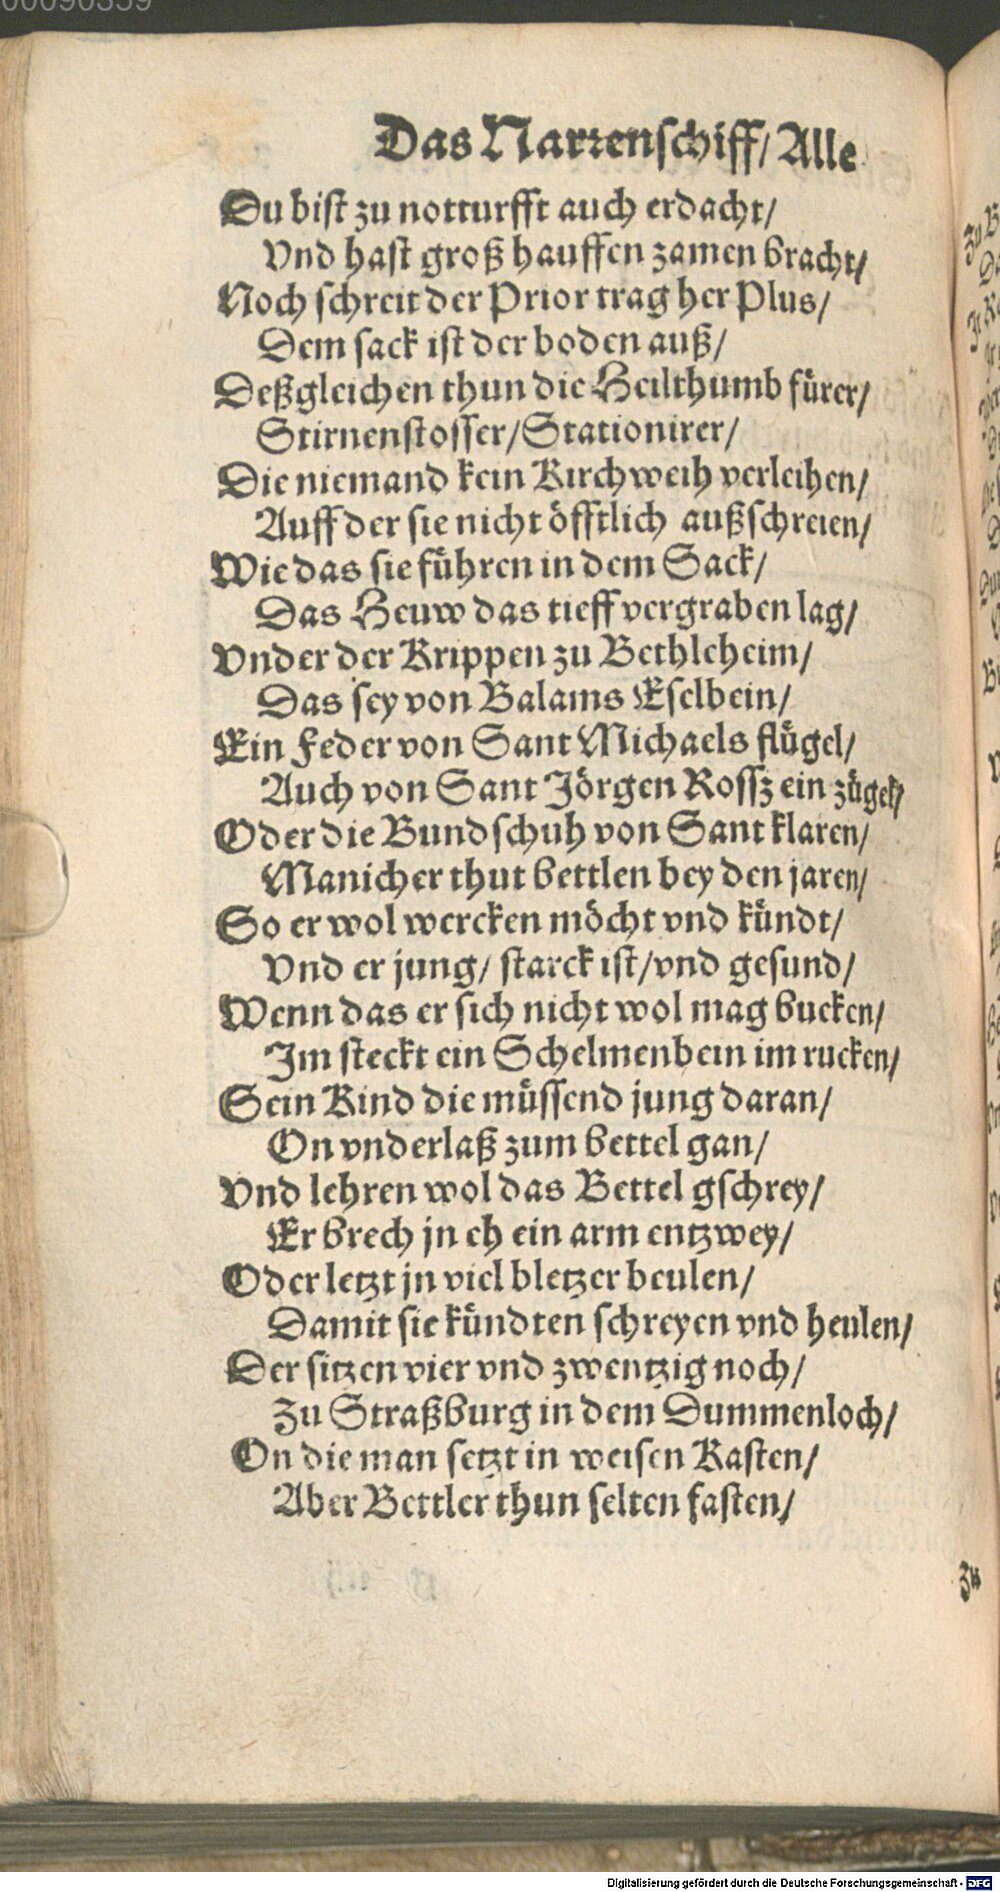 00090359
Das Narrenschiff/ Alle
Du bist zu notturfft auch erdacht/
Vnd hast groß hauffen zamen bracht/
Noch schreit der Prior trag her Plus/
Dem sack ist der boden auß/
Deßgleichen thun die Heilthumb fürer/
Stirnenstosser/Stationirer/
Die niemand kein Kirchweih verleihen/
Auff der sie nicht öfftlich außschreien/
Wie das sie führen in dem Sack/
Das Heuw das tieff vergraben lag/
Vnder der Krippen zu Bethleheim/
Das sey von Balams Eselbein/
Ein Feder von Sant Michaels flügel/
Auch von Sant Jörgen Rossz ein zügel/
Oder die Bundschuh von Sant klaren/
Manicher thut bettlen bey den jaren/
So er wol wercken möcht vnd kündt/
Vnd er jung/ starck ist/vnd gesund/
Wenn das er sich nicht wol mag bucken/
Im steckt ein Schelmenbein im rucken/
Sein Kind die müssend jung daran/
On vnderlaß zum bettel gan/
Vnd lehren wol das Bettel gschrey/
Er brech jn eh ein arm entzwey/
Oder letzt jn viel bletzer beulen/
Damit sie kündten schreyen vnd heulen/
Der sitzen vier vnd zwentzig noch/
Zu Straßburg in dem Dummenloch/
On die man setzt in weisen Kasten/
Aber Bettler thun selten fasten/
Zu
Digitalisierung gefördert durch die Deutsche Forschungsgemeinschaft - DFG